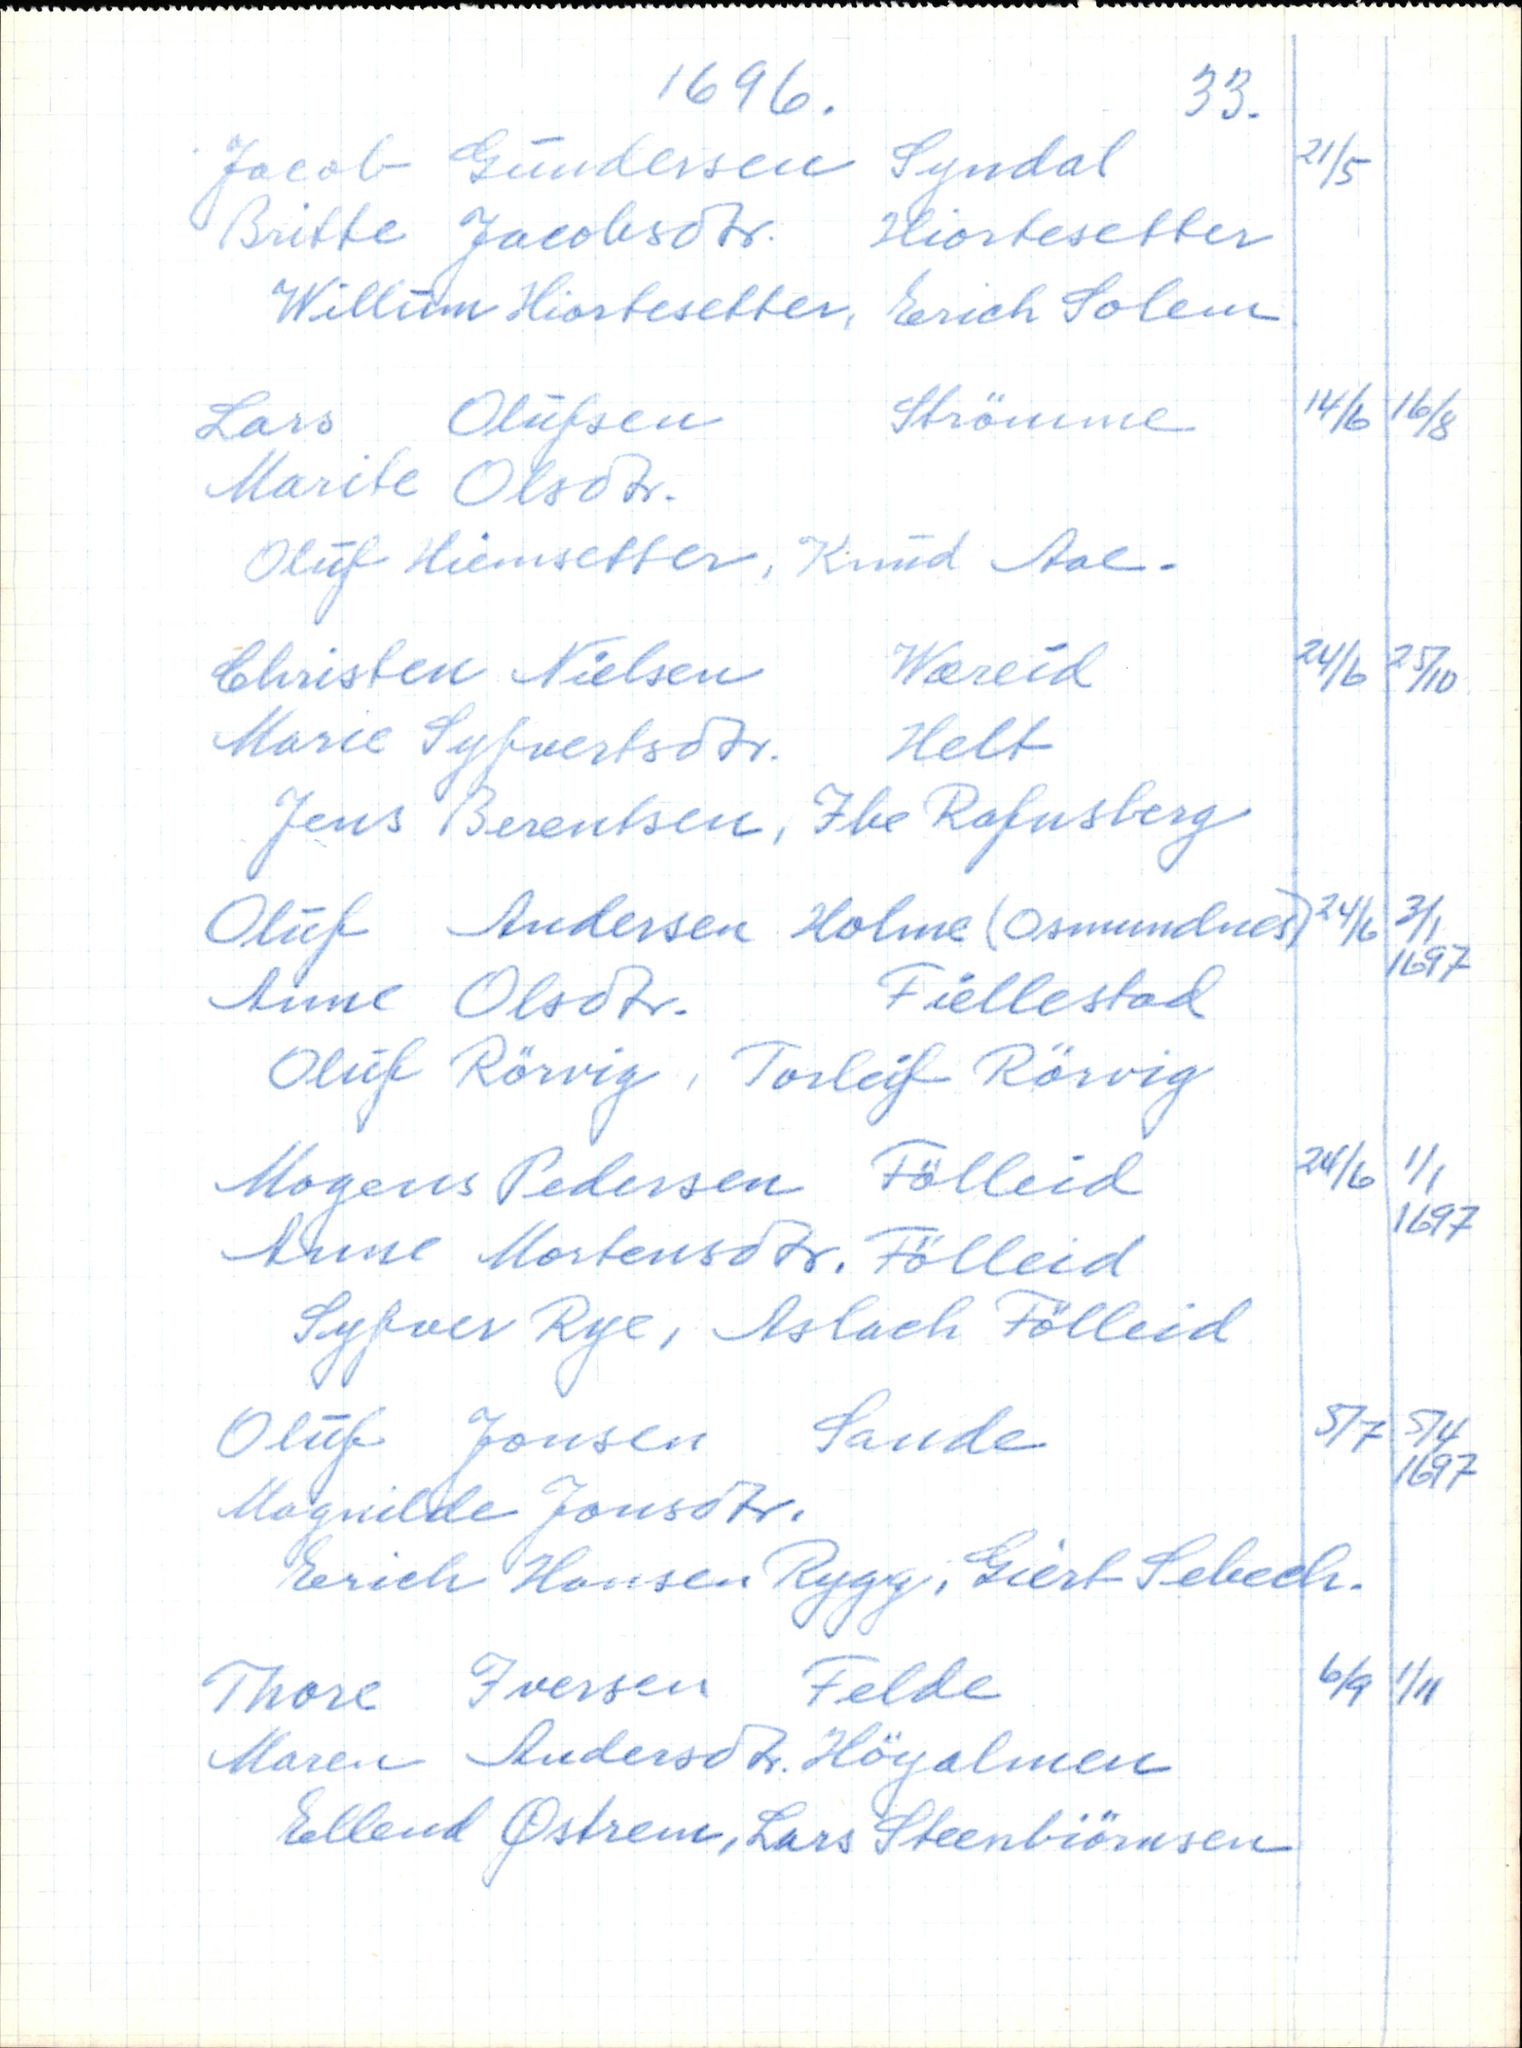 1696. 33.
Jacob Gündersen Syndal 21/5
Britte Jacobsdtr. Hiortesetter
Willüm Hiortesetter, Erich Solem
Lars Olüfsen Strömme 14/6 16/8
Marite Olsdtr.
Olüf Hiemsetter, Knüd Aae.
Christen Nielsen Wæreid 24/6 25/10
Marie Syfvertsdtr. Helt
Jens Berentsen, Ibe Rafnsberg
Olüf Andersen Holme (Osmundnes) 24/6 3/1
1697
Anne Olsdtr. Fiellestad
Olüf Rörvig, Torleif Rörvig
Mogens Pedersen Fölleid 24/6 1/1
1697
Anne Mortensdtr. Fölleid
Syfver Rye, Aslach Fölleid
Olüf Jonsen Sande 5/7 5/4
1697
Magnilde Jonsdtr.
Erich Hansen Rygg, Giert Sebech.
Thore Iversen Felde 6/9 1/11
Maren Andersdtr. Höyalmen
Ellend Østrem, Lars Steenbiörnsen